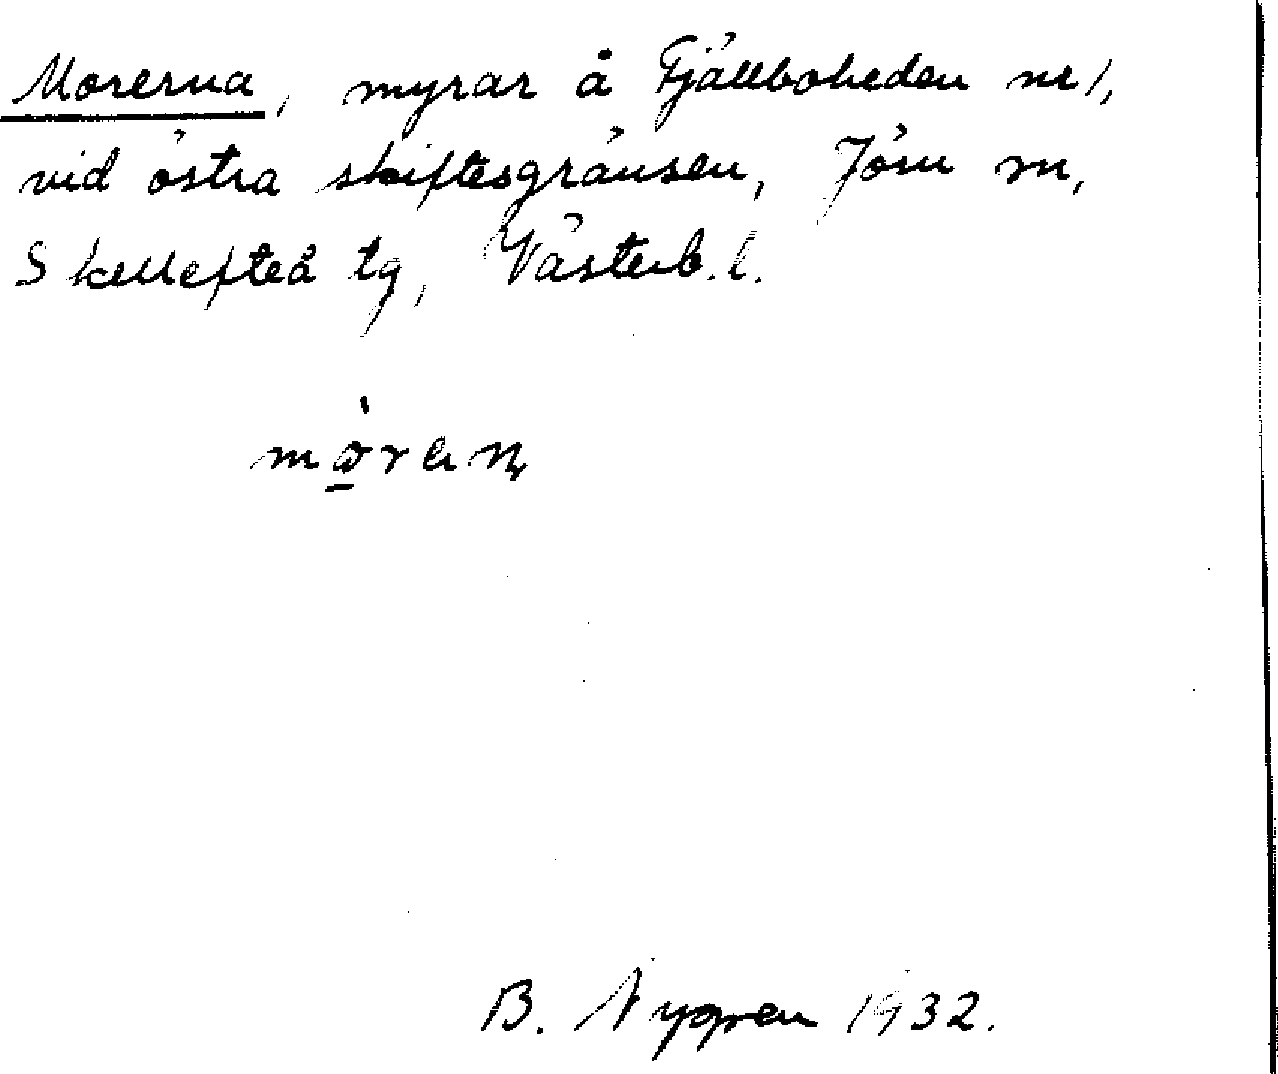 Morerna, myrar å Fjällboheden nr 1,
vid östra skiftesgränsen, Jörn sn,
Skellefteå tg, Västerb. l.
B. Nygren 1932.